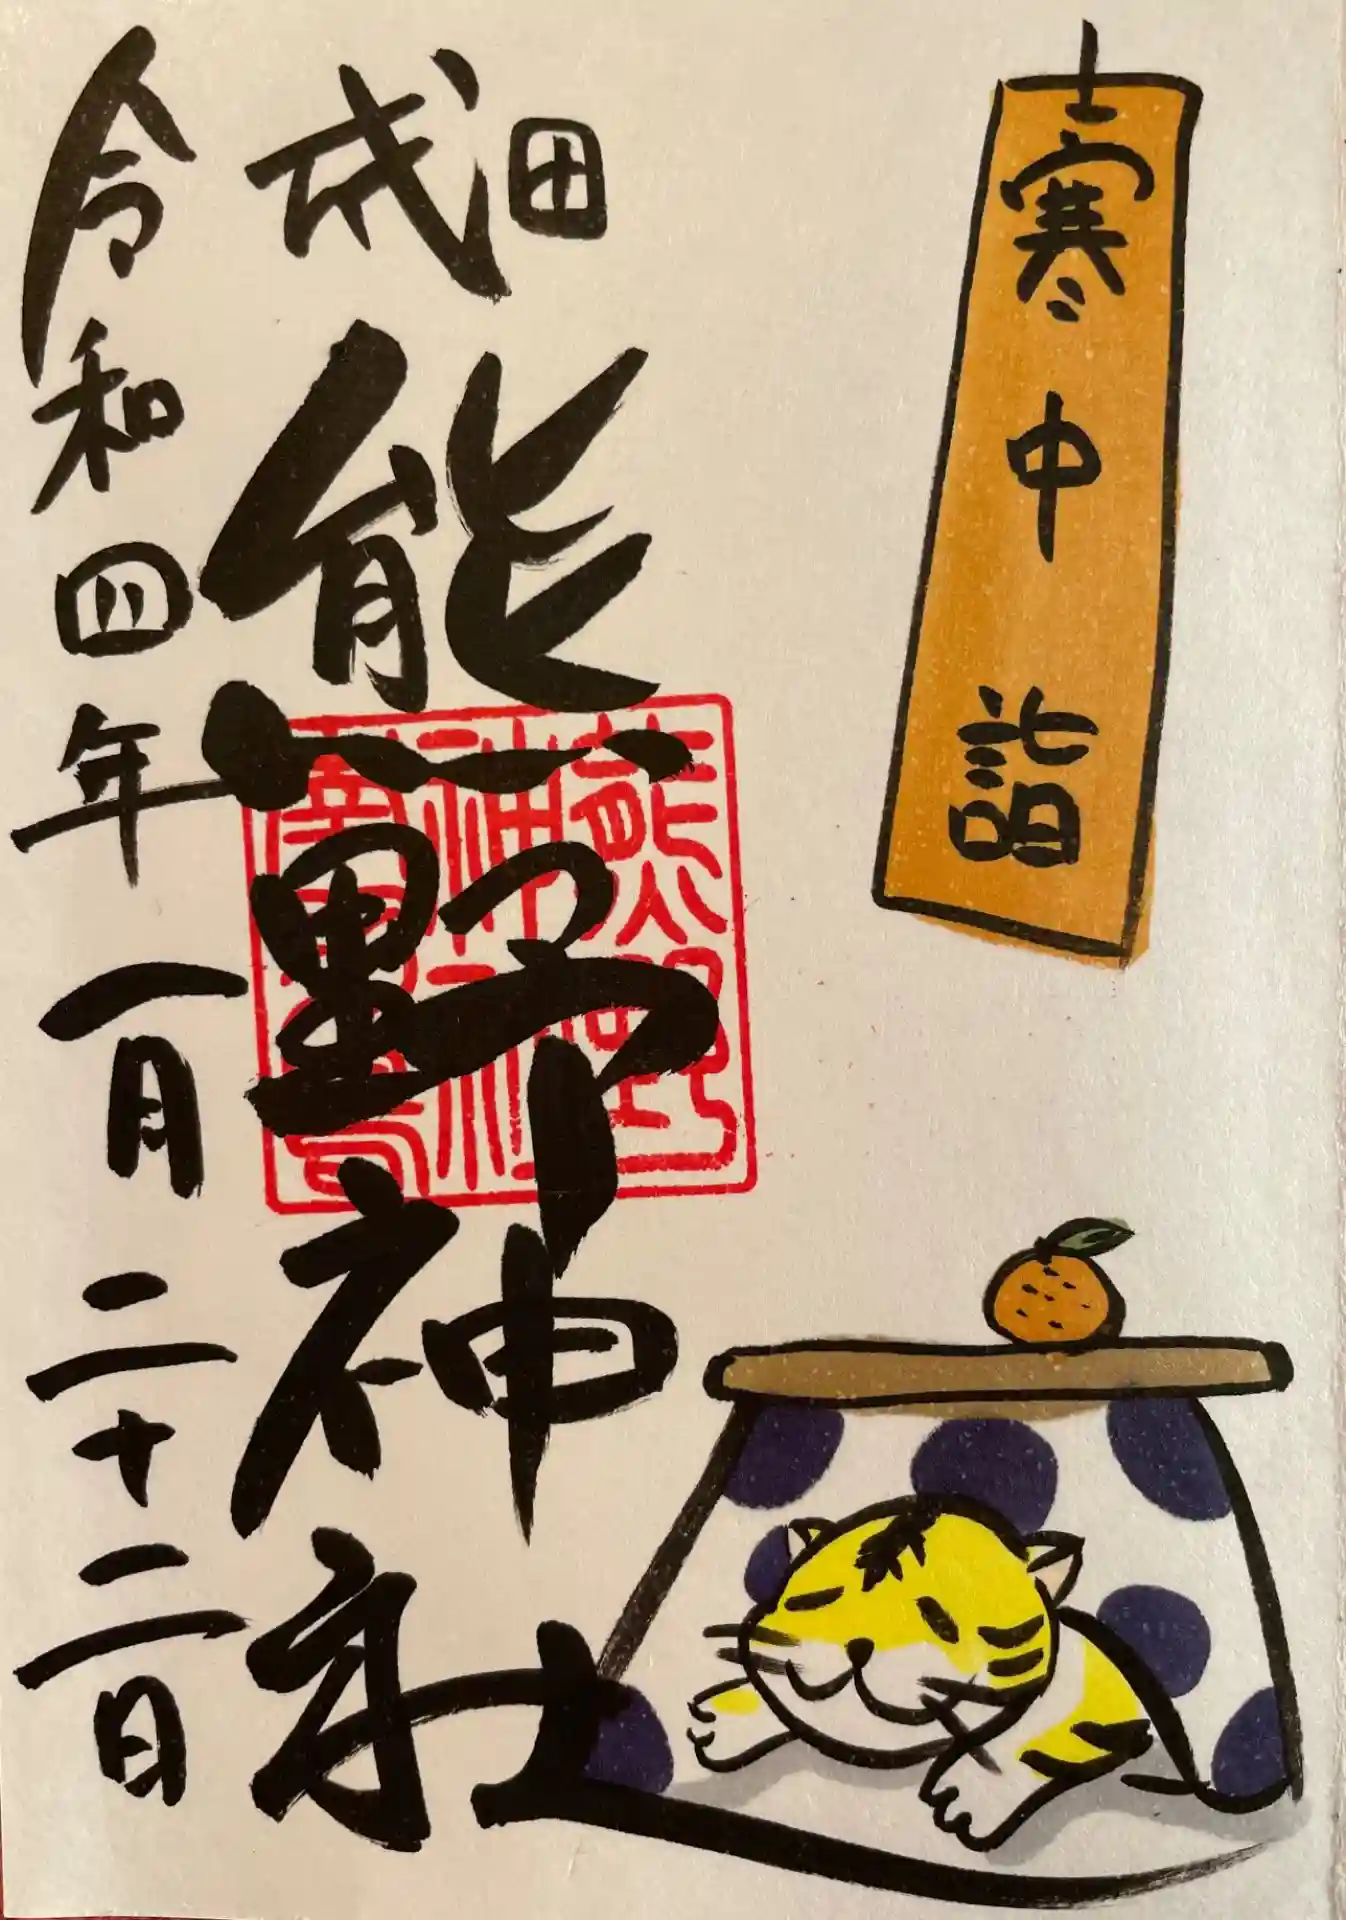 寒中詣
成田
熊野神社
熊野
神社
令和四年一月二十二日